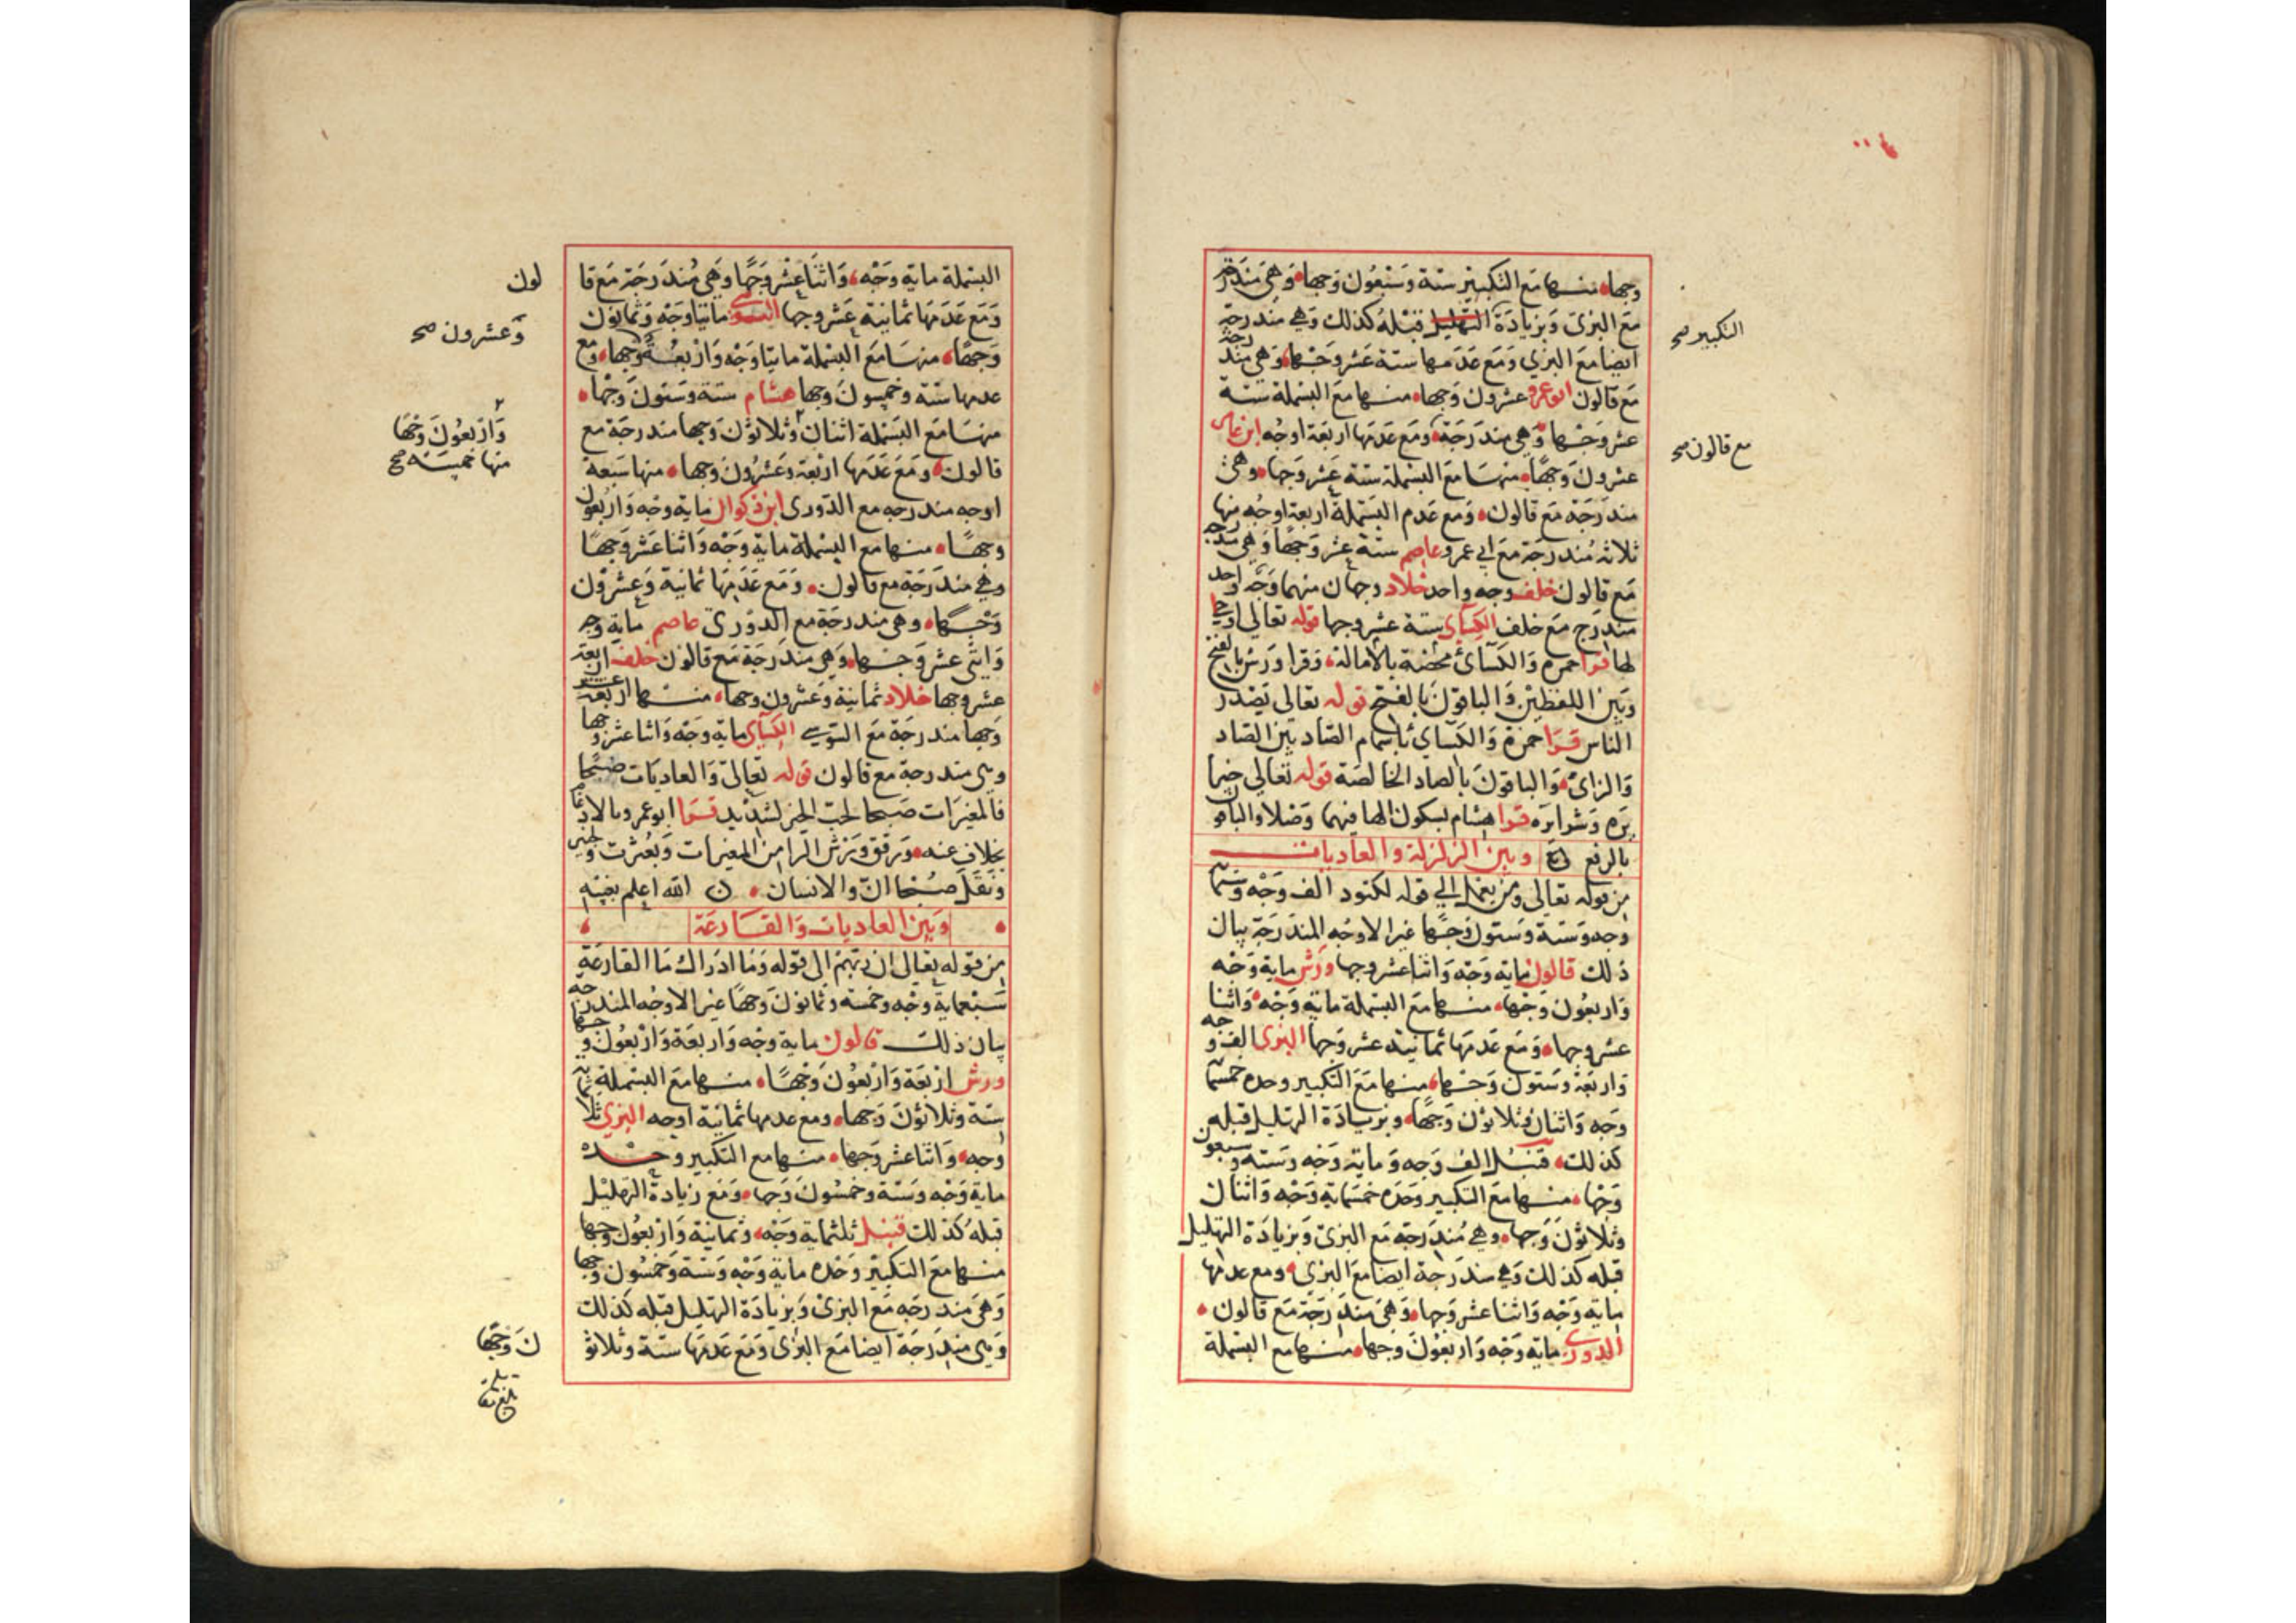 وجها منها مع التكبير ستة وسبعون وجها وهي مندرجة
مع البزي وبزيادة التهليل قبله كذلك وهي مندرجة
التكبير صح
ايضا مع البزي ومع عدمها ستة عشر وجها وهي مندرجة
مع قالون ابو عمرو عشرون وجها منها مع البسملة ستة
عشر وجها وهي مندرجة ومع عدمها اربعة اوجه ابن عامر
مع قالون صح
عشرون وجها منها مع البسملة ستة عشر وجها وهي
مندرجة مع قالون ومع عدم البسملة اربعة اوجه منها
ثلاثة مندرجة مع ابي عمرو عاصم ستة عشر وجها وهي مندرجة
مع قالون خلف وجه واحد خلاد وجهان منهما وجه واحد
مندرج مع خلف الكسآي ستة عشر وجها قوله تعالى اوحى
لها قرا حمزة والكسآئ محضة بالامالة وقرا ورش بالفتح
وبين اللفظين والباقون بالفتح قوله تعالى يصدر
الناس قرا حمزة والكسآئ باشمام الصاد بين الصاد
والزاى والباقون بالصاد الخالصة قوله تعالى خيرا
يره وشرا يره قرا هشام بسكون الها فيهما وصلا والباقون
بالرفع وبين الزلزلة والعاديات
من قوله تعالى ومن يعمل الي قوله لكنود الف وجه وستماية
وجه وستة وستون وجها غير الاوجه المندرجة بيان
ذلك قالون ماية وجه واثنا عشر وجها ورش ماية وجه
واربعون وجها منها مع البسملة ماية وجه واثنا
عشر وجها ومع عدمها ثمانية عشر وجها البزى الف وجه
واربعة وستون وجها منها مع التكبير وحده خمسماية
وجه واثنان وثلاثون وجها وبزيادة التهليل قبله
كذلك قنبل الف وجه وماية وجه وستة وسبعون
وجها منها مع التكبير وحده خمسماية وجه واثنان
وثلاثون وجها وهي مندرجة مع البزى وبزيادة التهليل
قبله كذلك وهي مندرجة ايضا مع البزي ومع عدمها
ماية وجه واثنا عشر وجها وهي مندرجة مع قالون
الدوري ماية وجه واربعون وجها منها مع البسملة
البسملة ماية وجه واثنا عشر وجها وهي مندرجة مع قا
لون
ومع عدمها ثمانية عشر وجها السوسي مايتا وجه وثمانون
وعشرون صح
وجها منها مع البسملة مايتا وجه واربعة وجها ومع
عدمها ستة وخمسون وجها هشام ستة وستون وجها
منها مع البسملة اثنان وثلاثون وجها مندرجة مع
واربعون وجها
منها خمسة صح
قالون ومع عدمها اربعة وعشرون وجها منها سبعة
اوجه مندرجه مع الدورى ابن ذكوان ماية وجه واربعون
وجها منها مع البسملة ماية وجه واثنا عشر وجها
وهي مندرجة مع قالون ومع عدمها ثمانية وعشرون
وجها وهي مندرجة مع الدوري عاصم ماية وجه
واثني عشر وجها وهي مندرجة مع قالون خلف اربعة
عشر وجها خلاد ثمانية وعشرون وجها منها اربعة عشر
وجها مندرجة مع السوسي الكسآى ماية وجه واثنا عشر وجها
وهي مندرجة مع قالون قوله تعالى والعاديات ضبحا
فالمغيرات صبحا لحب الخير لشديد قرا ابو عمرو بالادغام
بخلاف عنه ورقق ورش الرا من المغيرات وبعثرت
ونقل صبحا ان والانسان الله اعلم بغيبه
وبين العاديات والقارعة
من قوله تعالى ان ربهم الى قوله وما ادراك ما القارعة
سبعماية وجه وخمسة وثمانون وجها غير الاوجه المندرجة
بيان ذلك قالون ماية وجه واربعة واربعون وجها
ورش اربعة واربعون وجها منها مع البسملة
ستة وثلاثون وجها ومع عدمها ثمانية اوجه البزي ثلاثماية
وجه واثنا عشر وجها منها مع التكبير وحده
ماية وجه وستة وخمسون وجها ومع زيادة التهليل
قبله كذلك قنبل ثلثماية وجه وثمانية واربعون وجها
منها مع التكبير وحده ماية وجه وستة وخمسون وجها
وهي مندرجه مع البزى وبزيادة التهليل قبله كذلك
وهي مندرجة ايضا مع البزى ومع عدمها ستة وثلاثو
ن وجها